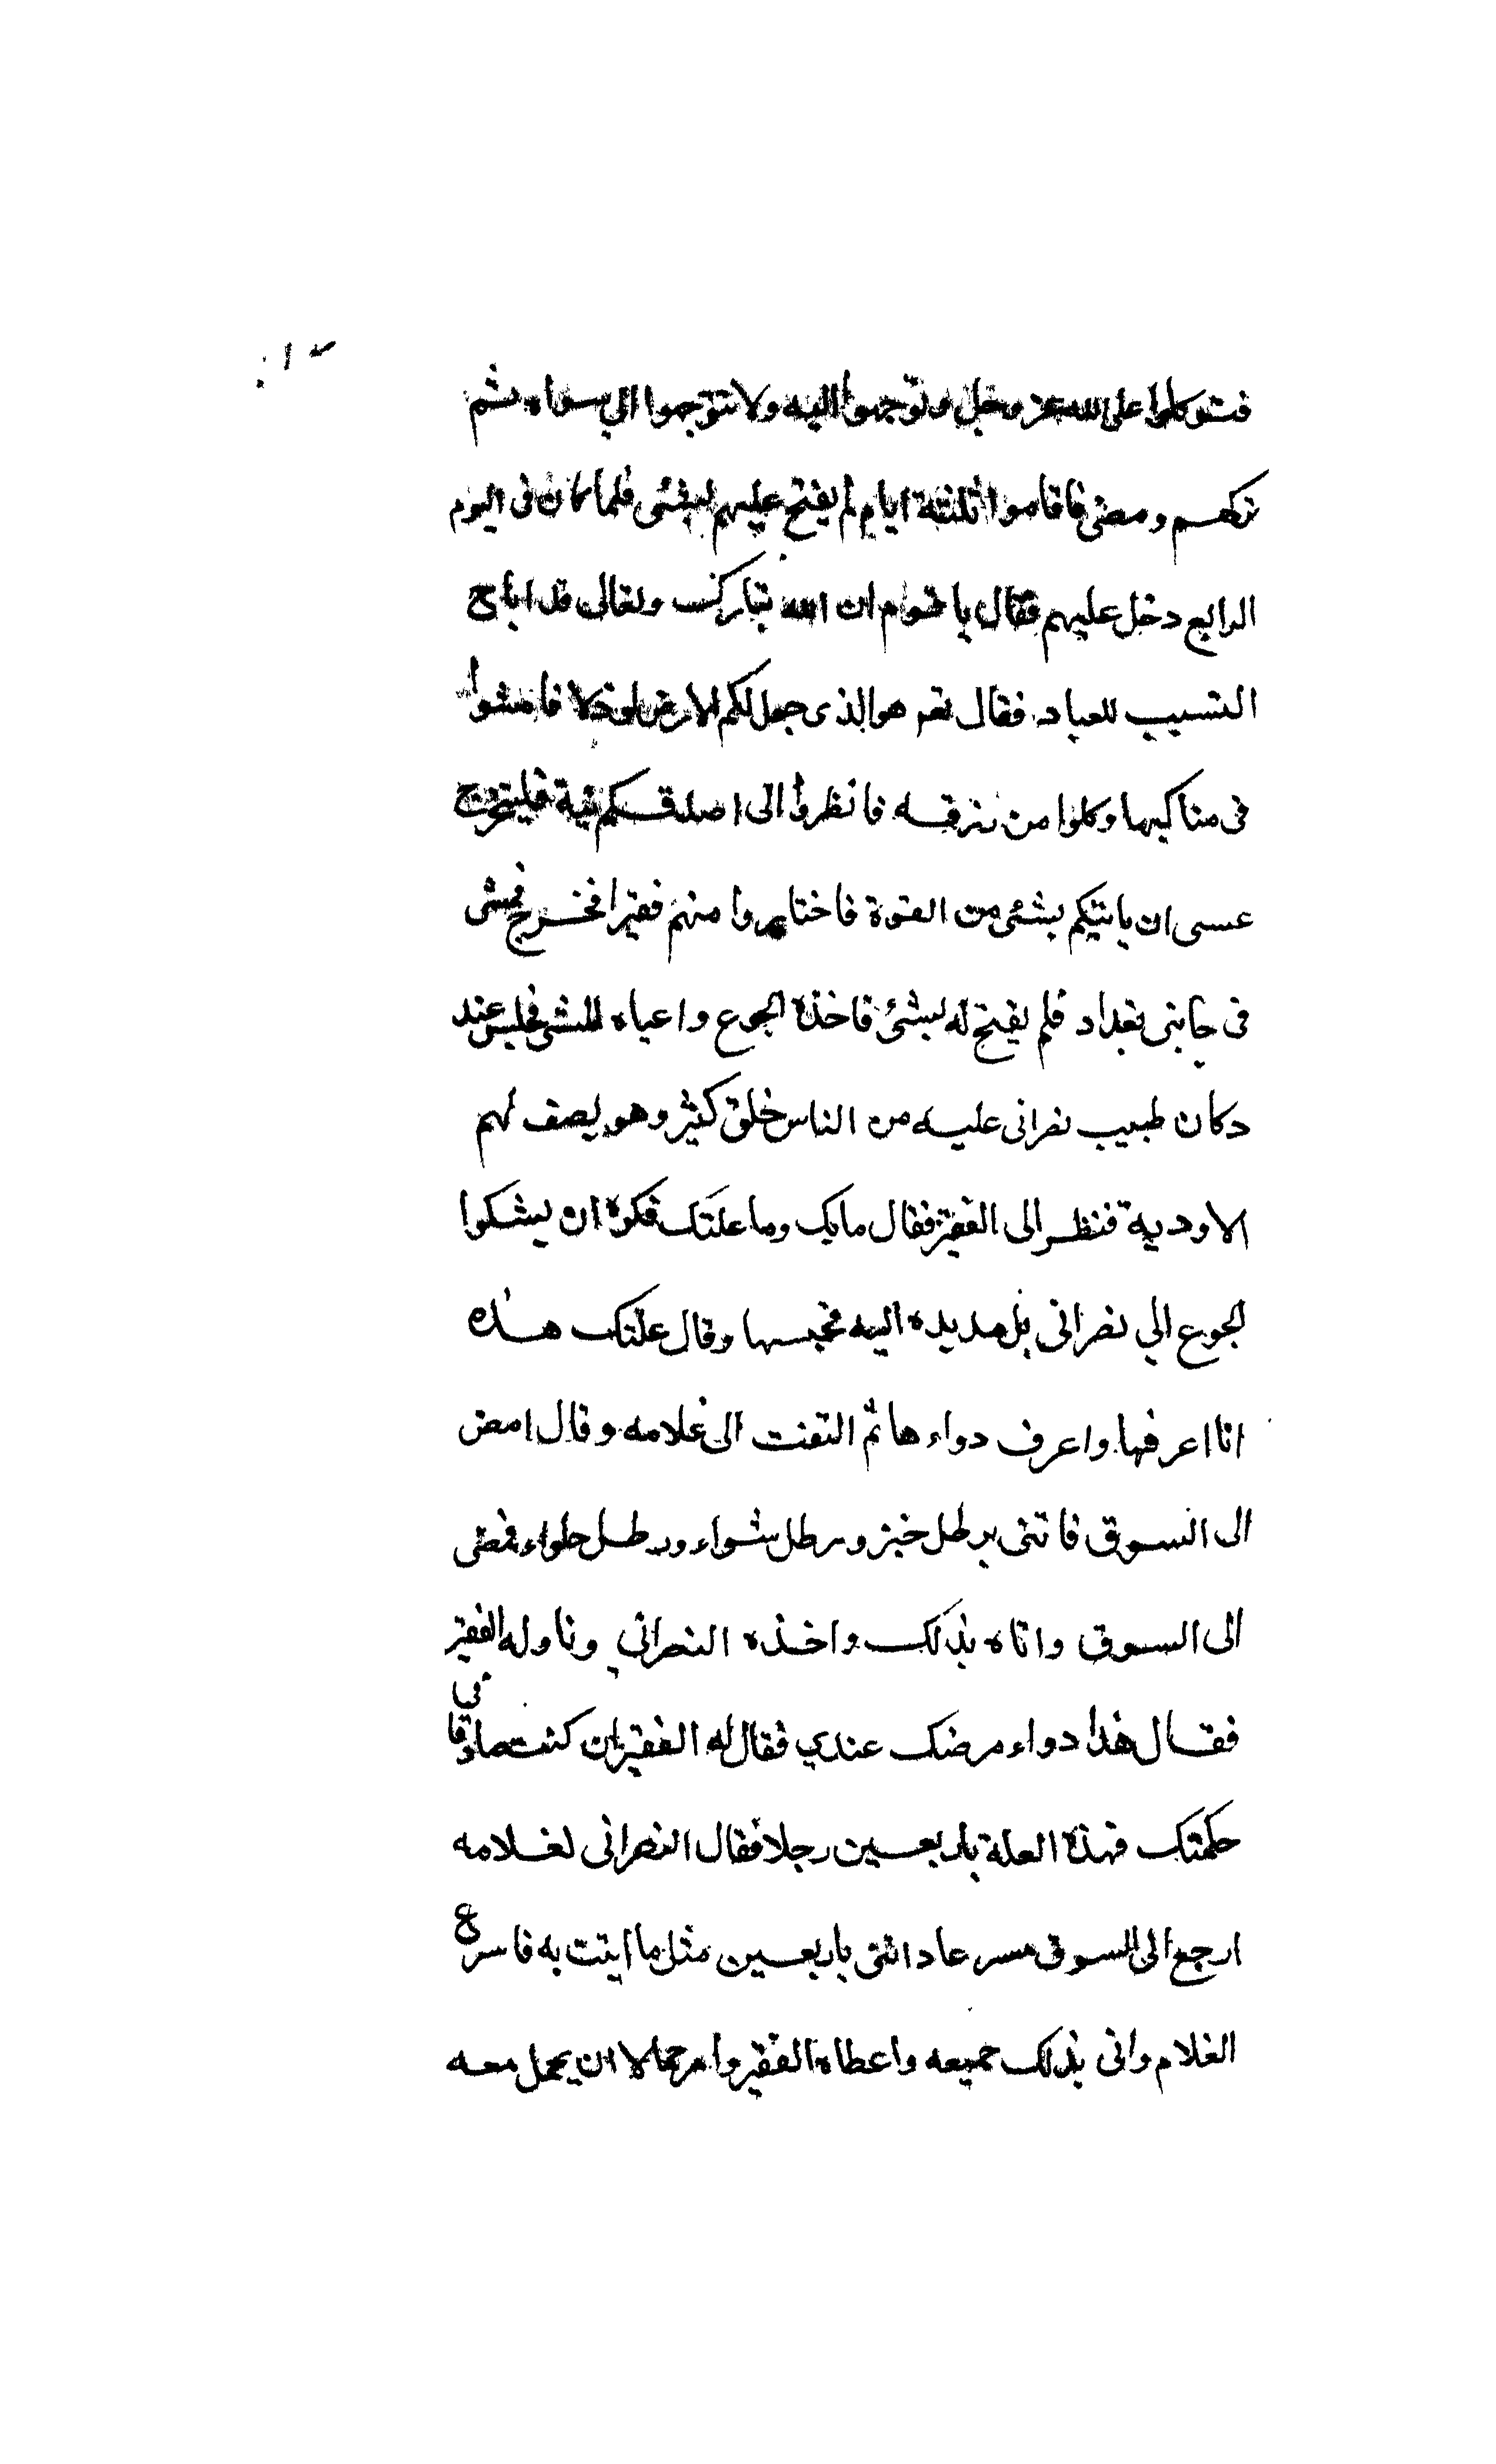 فتوكلوا على الله عز وجل وتوجهوا اليه ولا تتوجهوا الي سواه ثم
تركهم ومضى فاقاموا ثلثة ايام لم يفتح عليهم بشئ فلما كان فى اليوم
الرابع دخل عليهم فقال يا قوم ان الله تبارك وتعالى قد اباح
التسبب للعباد فقال تعر هو الذى جعل لكم الارض ذلولا فامشوا
فى مناكبها وكلوا من رزقه فانظروا الى اصدقكم نية فليخرج
عسى ان ياتيكم بشئ من القوة فاختاروا منهم فقيرا فخرج فمشى
فى جانبى بغداد فلم يفتح له بشئ فاخذه الجوع واعياه المشى فجلس عند
دكان طبيب نصرانى عليه من الناس خلق كثير وهو يصف لهم
الاودية فنظر الى الفقير فقال مابك وما علتك فكره ان يشكوا
الجوع الي نصرانى بل مد يده اليه فجسها وقال علتك هذه
انا اعرفها واعرف دواءها ثم التفت الى غلامه وقال امض
الى السوق فاتنى برطل خبز ورطل شواء ورطل حلواء فمضى
الى السوق واتاه بذلك واخذه النصراني وناوله الفقير
فقال هذا دواء مرضك عندي فقال له الفقير ان كنت صادقا في
حكمتك فهذه العلة باربعين رجلا فقال النصرانى لغلامه
ارجع الى السوق مسرعا دائتى باربعين مثل ما اتيت به فاسرع
الغلام واتى بذلك جميعه واعطاه الفقير وامر حمالا ان يحمل معه